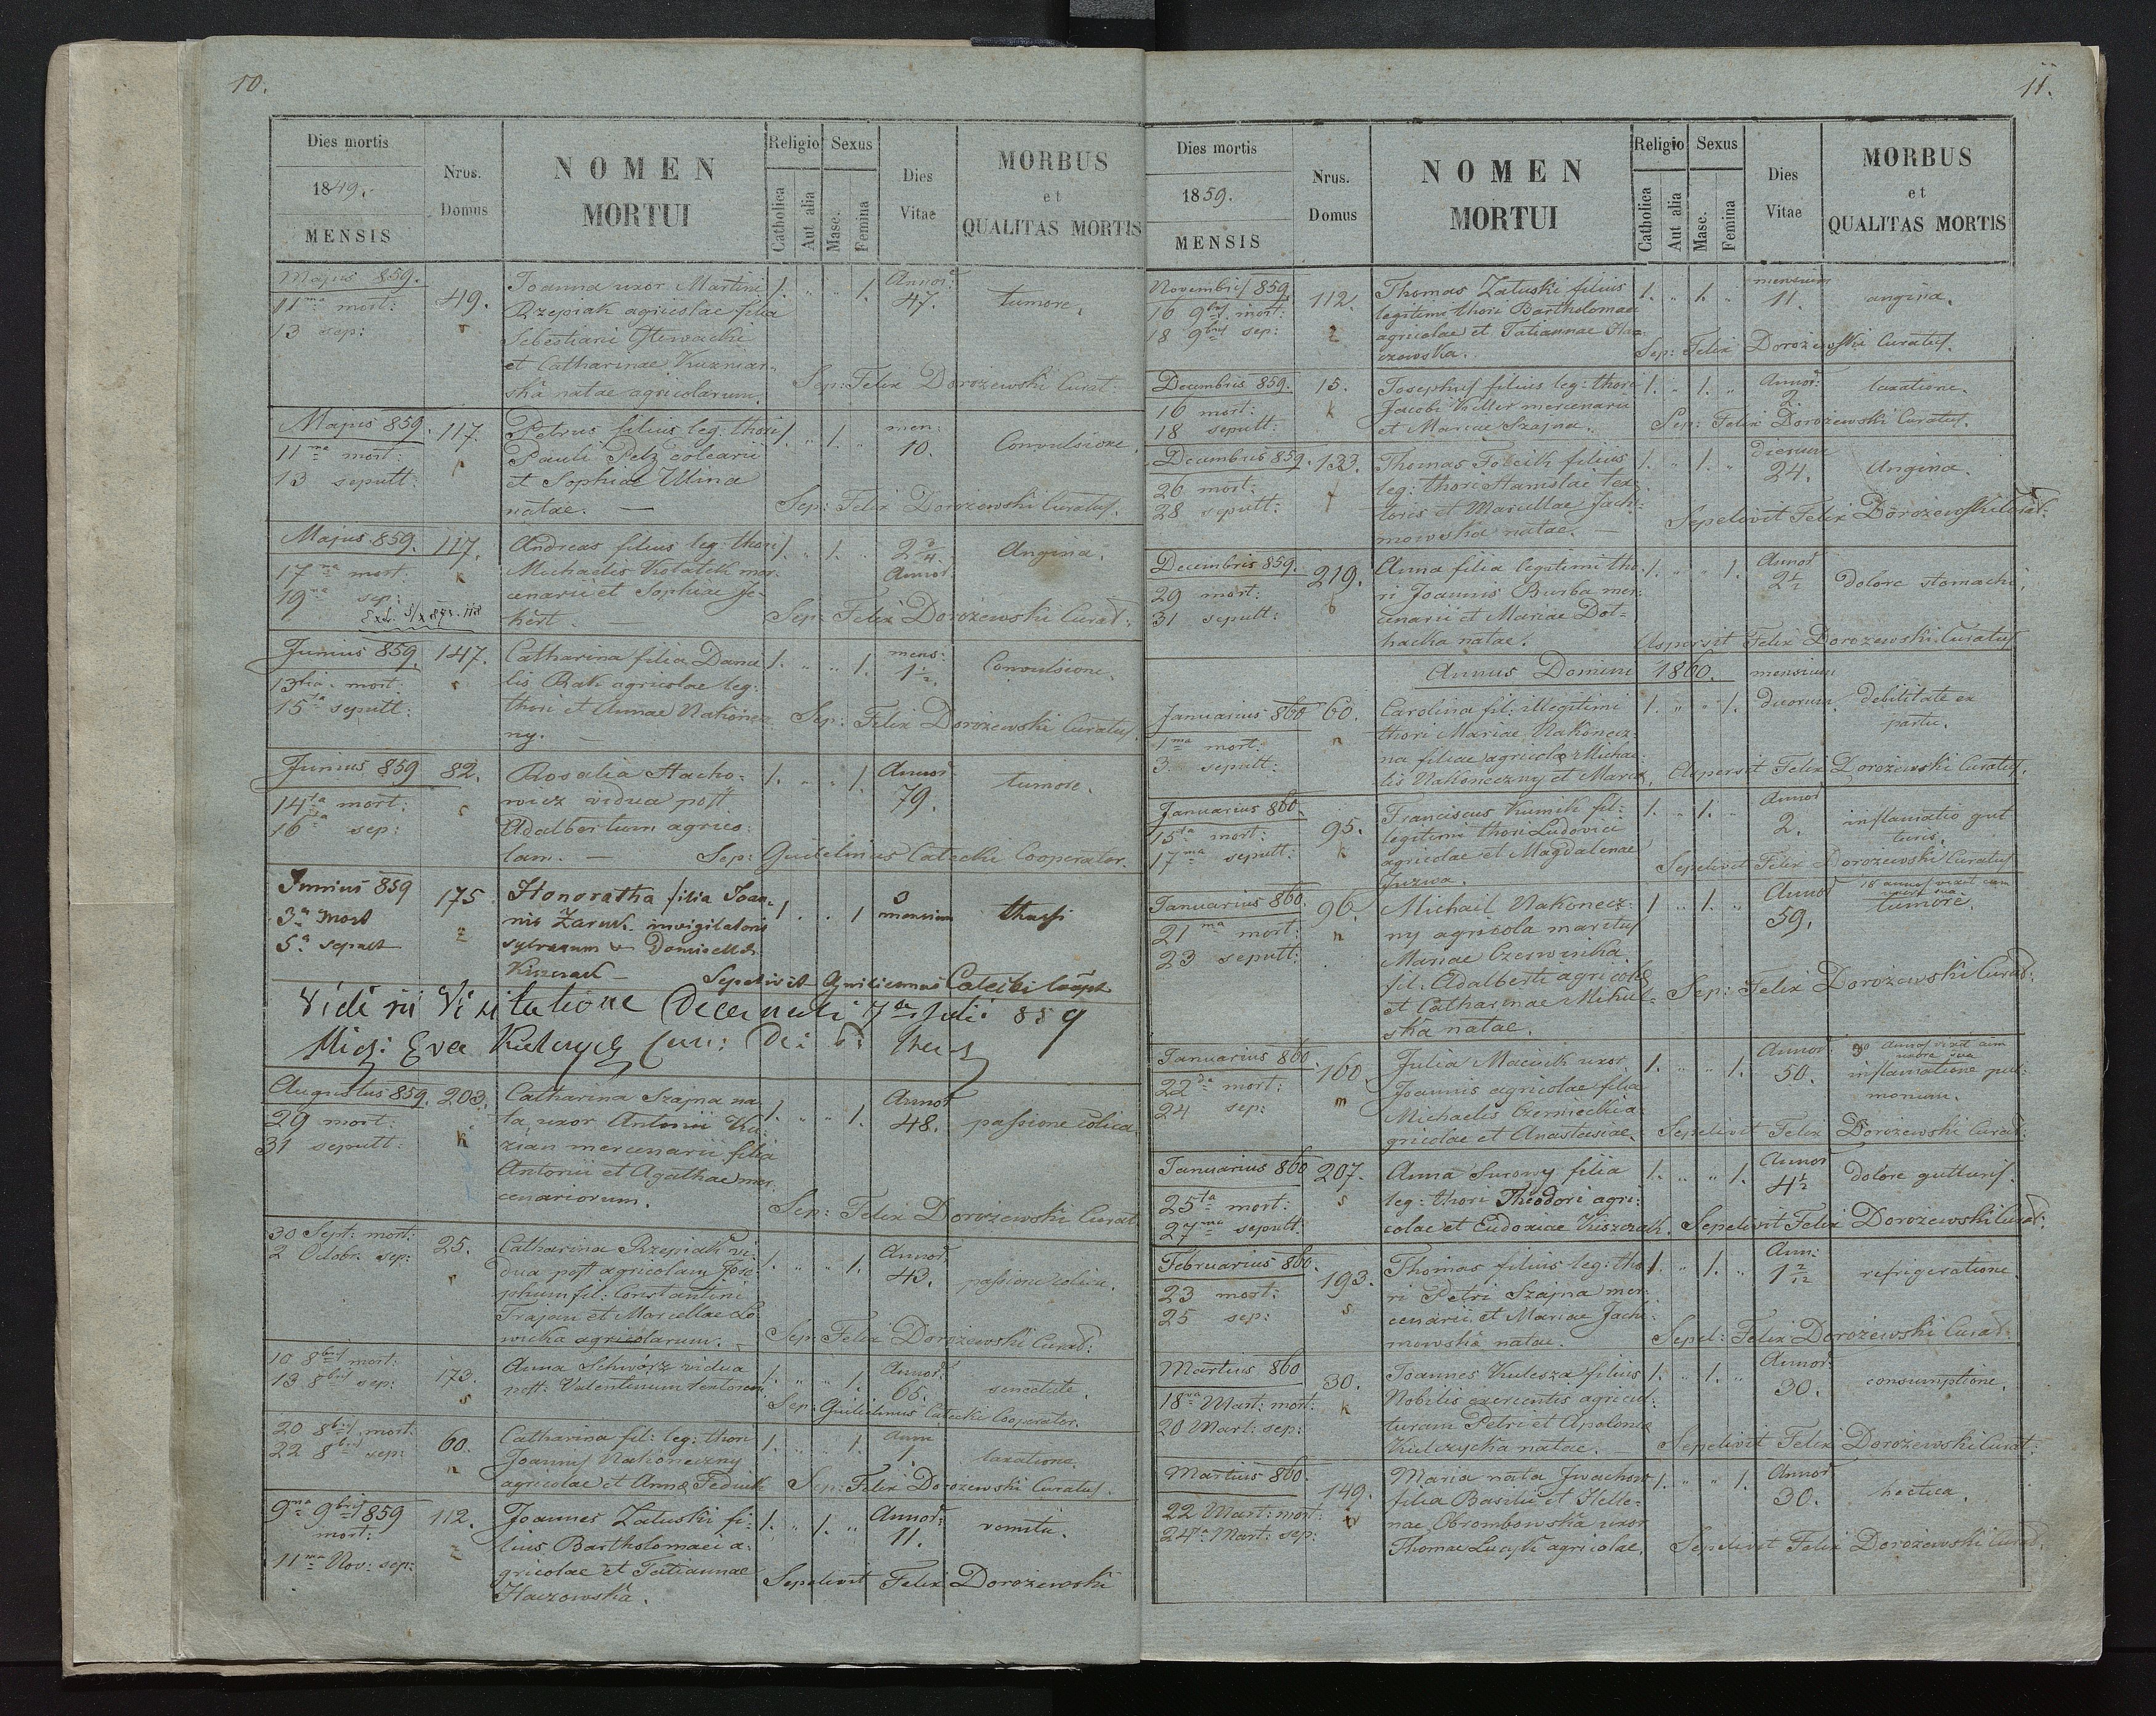 10.
Dies mortis
1849.
MENSIS
Nrus.
Domus
NOMEN
MORTUI
Religio
Catholica
Aut alia
Sexus
Masc.
Femina
Dies
Vitae
MORBUS
et
QUALITAS MORTIS
Majus 859.
11ma mort:
13 sep:
49.
r
Joanna uxor Martini
Rzepiak agricolae filia
Sebestiani
et Catharinae Kuzniar-
ska natae agricolarum.
1. " " 1.
Annor:
47.
tumore.
Sep: Felix Dorożewski Curat:
Majus 859.
11ma mort:
13 sepult:
117.
Petrus filius leg: thori
Pauli Pelz
et Sophiae Ulina
natae. —
1. " 1. "
men:
10.
Convulsione.
Sep: Felix Dorożewski Curatus.
Majus 859.
17ma mort:
19na sep:
117.
k
Andreas filius leg: thori
Michaelis Kotatek mer-
cenarii et Sophiae Je-
hert. —
1. " 1. "
2 3/4
Annor
Angina.
Sep: Felix Dorożewski Curat:
Junius 859.
13tia mort:
15ta sepult:
147.
r
Catharina filia Danie-
lis Bak agricolae leg:
thori et Annae Nakonecz-
ny. —
1. " " 1.
mens:
1 1/2.
Convulsione.
Sep: Felix Dorożewski Curatus.
Junius 859
14ta mort:
16ta sep:
82.
Rosalia Hacho-
wicz vidua post
Adalbertum agrico-
lam. —
1. " " 1.
Annor
79.
tumore.
Sep: Guilelmus Catecki Cooperator.
Junius 859
3a mort
5a sepult
175.
z
Honoratha filia Joan-
nis Żaruk invigilatoris
sylvarum
1 . . 1
3
mensium
Sepelivit Guilielmus
Vidi in Visitatione Decanali 7a Julii 859
Augustus 859.
29 mort:
31 sepult:
203.
k
Catharina Szajna na-
ta, uxor Antonii Ku-
zian mercenarii filia
Antonii et Agathae mer-
cenariorum.
1. " " 1.
Annor
48.
passione colica.
Sep: Felix Dorożewski Curat:
30 Sept: mort:
2 Octobr: sep:
25.
r
Catharina Rzepiak vi-
dua post agricolam Jose-
phum fil: Constantini
Trajan et Marcellae Lo-
wicka agricolarum. —
1. " " 1.
Annor
43.
passione colica.
Sep: Felix Dorożewski Curat:
10 8bris mort:
13 8bris sep:
173.
s
Anna Schwórz vidua
post: Valentinum textorem.
1. " " 1.
Annor:
65.
senectute.
Sep: Guilielmus Catecki Cooperator.
20 8bris mort:
22 8bris sep:
60.
n
Catharina fil: leg: thori
Joannis Nakoneczny
agricolae et Annae Fediuk
1. " " 1.
Ann
1.
laxatione.
Sep: Felix Dorożewski Curatus.
9na 9bris 859
mort:
11ma Nov: sep:
112.
z
Joannes Załuski fi-
lius Bartholomaei a-
gricolae et Tatiannae
Haczowska.
1. " 1. "
Annor:
11.
vomitu.
Sepelivit Felix Dorożewski
11.
Dies mortis
1859.
MENSIS
Nrus.
Domus
NOMEN
MORTUI
Religio
Catholica
Aut alia
Sexus
Masc.
Femina
Dies
Vitae
MORBUS
et
QUALITAS MORTIS
Novembris 859.
16 9bris mort:
18 9bris sep:
112.
z
Thomas Załuski filius
legitimi thori Bartholomaei
agricolae et Tatiannae Ha-
czowska.
1. " 1. "
mensium
11.
angina.
Sep: Felix Dorożewski Curatus.
Decembris 859.
16 mort:
18 sepult:
15.
k
Josephus filius leg: thori
Jacobi Keller mercenarii
et Mariae Szajna.
1. " 1. "
Annor:
2.
laxatione.
Sep: Felix Dorożewski Curatus.
Decembris 859.
26 mort:
28 sepult:
133.
f
Thomas Folcik filius
leg: thori Stanislae tex-
toris et Marcellae Jach-
mowska natae. —
1. " 1. "
dierum
24.
Angina.
Sepelivit Felix Dorożewski Curat:
Decembris 859.
29 mort:
31 sepult:
219.
b
Anna filia legitimi tho-
ri Joannis Burba mer-
cenarii et Mariae Dol-
hacka natae.
1. " " 1.
Annor
2 1/2
dolore stomachi.
Aspersit Felix Dorożewski Curatus
Annus Domini 1860.
Januarius 860
1ma mort:
3 sepult:
60.
n
Carolina fil: illegitimi
thori Mariae Nakonecz-
na filiae agricolae Michae-
lis Nakoneczny et Mariae.
1. " " 1.
mensium
duorum
debilitate ex
partu.
Aspersit Felix Dorożewski Curatus.
Januarius 860.
15ta mort:
17ma sepult:
95.
k
Franciscus Kumik fil:
legitimi thori Ludovici
agricolae et Magdalenae
Juzwa.
1. " 1. "
Annor
2.
inflamatio gut
turis.
Sepelivit Felix Dorożewski Curatus
Januarius 860.
21ma mort:
23 sepult:
96.
n
Michaił Nakonecz-
ny agricola maritus
Mariae Czerwinka
fil. Adalberti agricolae
et Catharinae Mikul-
ska natae.
1 " 1. "
Annor
59.
18 annos vixit cum
uxore sua
tumore.
Sep: Felix Dorożewski Curat:
Januarius 860
22da mort:
24 sep:
160.
m
Julia Maciuk uxor
Joannis agricolae filia
Michaelis Czerniecki a-
gricolae et Anastasiae.
1. " " 1.
Annor.
50.
30 annos vixit cum
uxore sua
inflamatione pul-
monum.
Sepelivit Felix Dorożewski Curat:
Januarius 860
25ta mort:
27ma sepult:
207.
s
Anna Surowy filia
leg: thori Theodori agri-
colae et Eudoxiae Kuszczak.
1. " " 1.
Annor
4 1/2
dolore gutturis.
Sepelivit Felix Dorożewski Curat:
Februarius 860.
23 mort:
25 sep:
193.
s
Thomas filius leg: tho-
ri Petri Szajna mer-
cenarii et Mariae Jach-
mowska natae.
1. " 1. "
Ann:
1 2/12
refrigeratione.
Sepel: Felix Dorożewski Curat:
Martius 860
18va Mart: mort:
20 Mart: sep:
30.
k
Joannes Kulesza filius
Nobilis exercentis agricul-
turam Petri et Apolonia
Kulczycka natae. —
1. " 1. "
Annor
30.
consumptione.
Sepelivit Felix Dorożewski Curat:
Martius 860.
22 Mart: mort:
24ta Mart: sep:
149.
Maria nata Iwachow
filia Basilii et Hele-
nae Obrombowska uxor
Thomae Lucyk agricolae.
1. " " 1.
Annor
30.
hectica.
Sepelivit Felix Dorożewski Curat: